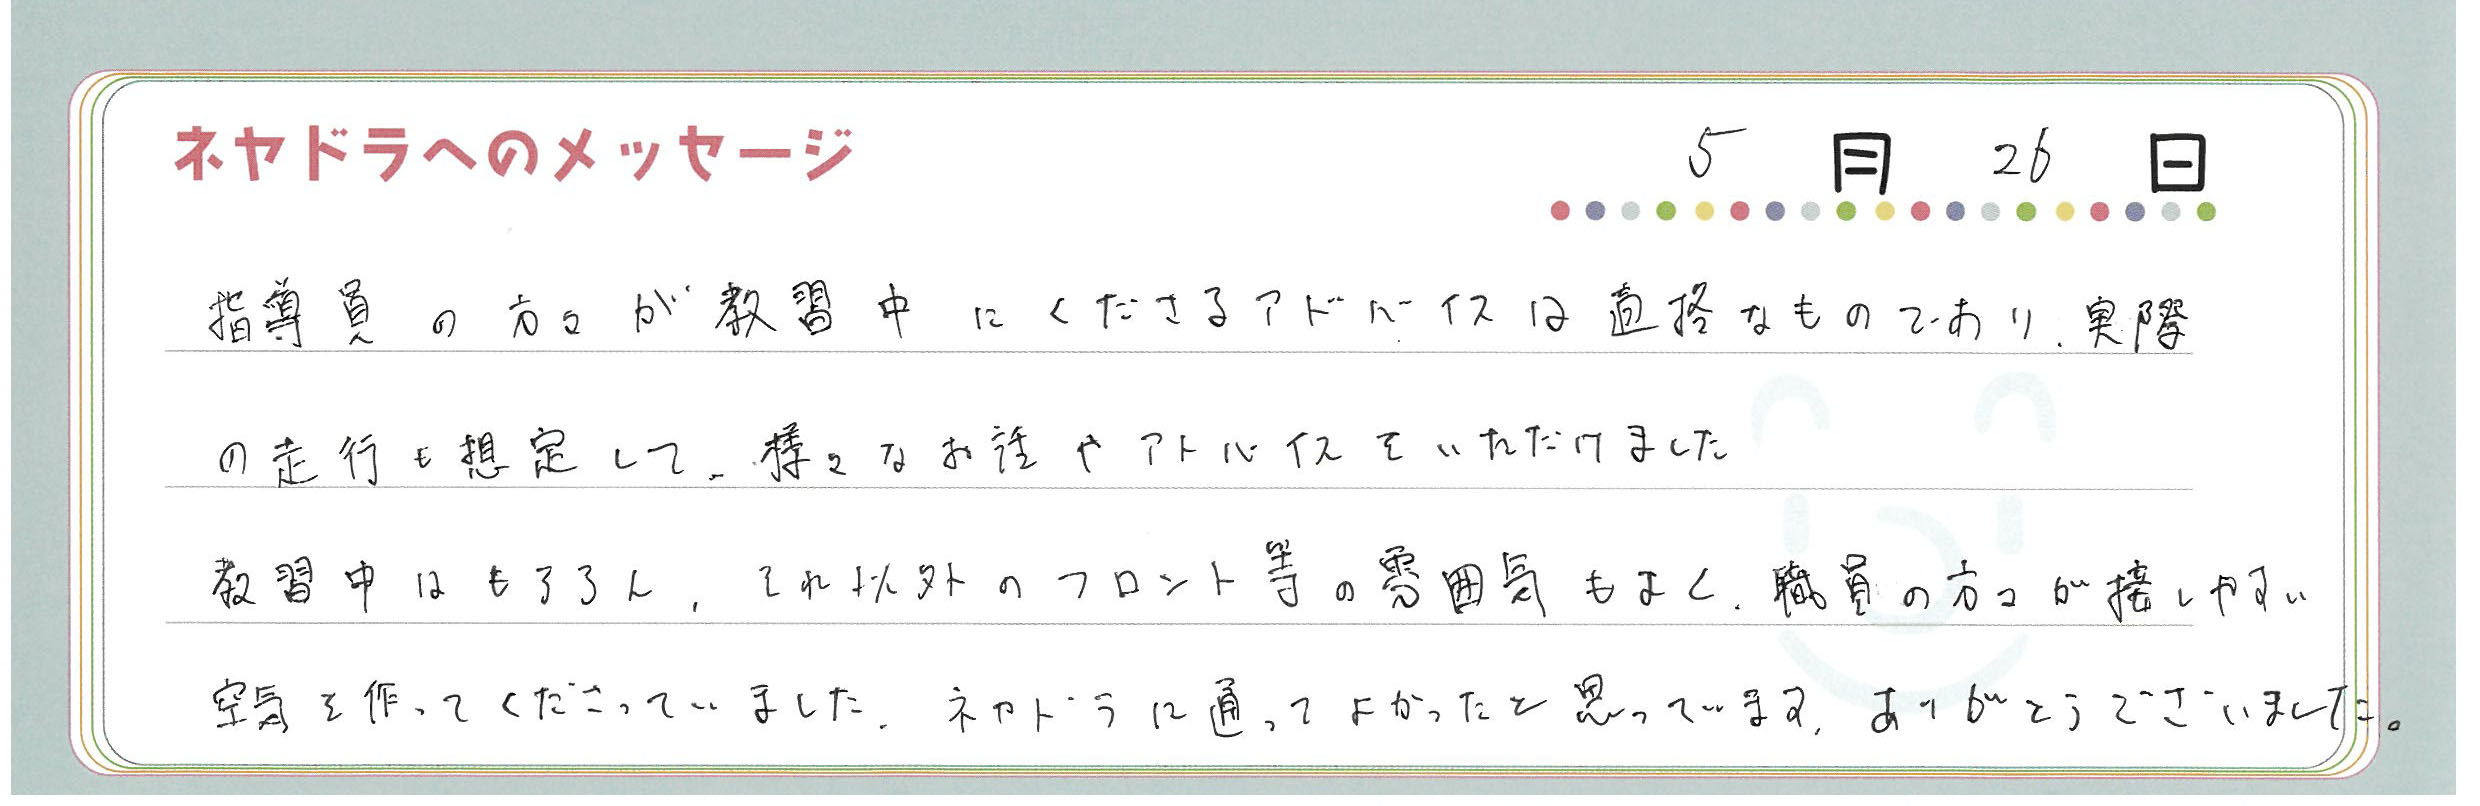 ネヤドラへのメッセージ
5月26日
指導員の方々が教習中にくださるアドバイスは適格なものであり、実際
の走行も想定して、様々なお話やアドバイスをいただけました
教習中はもちろん、それ以外のフロント等の雰囲気もよく、職員の方々が接しやすい
空気を作ってくださっていました。ネヤドラに通ってよかったと思っています。ありがとうございました。